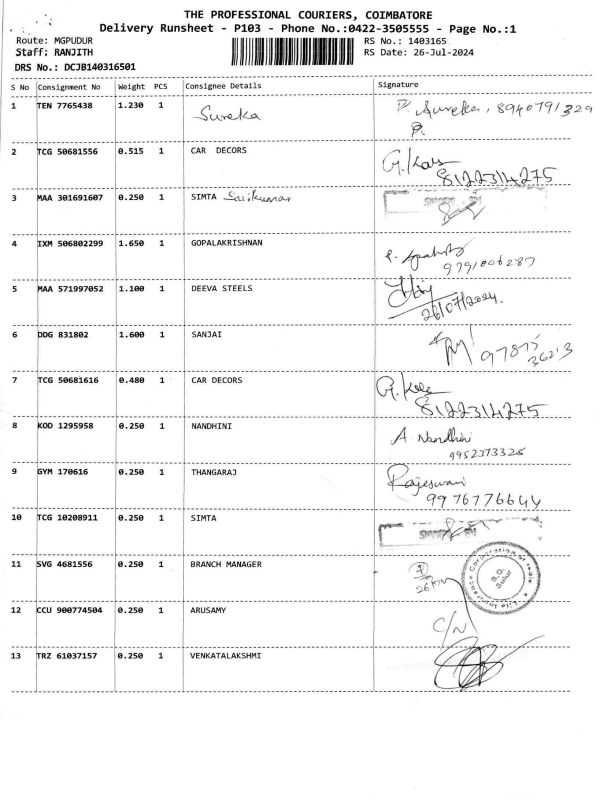 THE PROFESSIONAL COURIERS, COIMBATORE
Delivery Runsheet - P103 - Phone No.:0422-3505555 - Page No.:1
Route: MGPUDUR RS No.: 1403165
Staff: RANJITH RS Date: 26-Jul-2024
DRS No.: DCJB140316501
S No Consignment No Weight PCS Consignee Details Signature
1 TEN 7765438 1.230 1 Sureka P. Sureka, 8940791329
2 TCG 50681556 0.515 1 CAR DECORS G. 8122314275
3 MAA 301691607 0.250 1 SIMTA Sasikumar
4 IXM 506802299 1.650 1 GOPALAKRISHNAN 9791006287
5 MAA 571997052 1.100 1 DEEVA STEELS 26/07/2024.
6 DDG 831802 1.600 1 SANJAI 97875 36213
7 TCG 50681616 0.480 1 CAR DECORS G. 8122314275
8 KOD 1295958 0.250 1 NANDHINI A. Nandhini
9952373325
9 GYM 170616 0.250 1 THANGARAJ Rajeswari
9976776644
10 TCG 10208911 0.250 1 SIMTA
11 SVG 4681556 0.250 1 BRANCH MANAGER Life Insurance Corporation of India S.O. Sulur
12 CCU 900774504 0.250 1 ARUSAMY C/N
13 TRZ 61037157 0.250 1 VENKATALAKSHMI